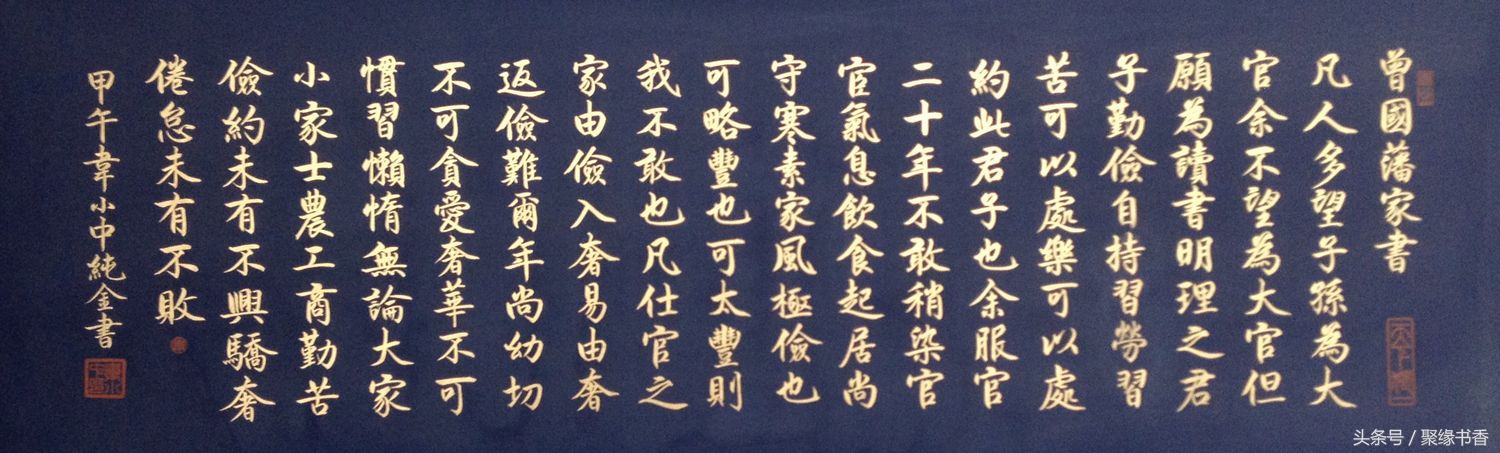 曾國藩家書
凡人多望子孫為大
官余不望為大官但
願為讀書明理之君
子勤儉自持習勞習
苦可以處樂可以處
約此君子也余服官
二十年不敢稍染官
宦氣息飲食起居尚
守寒素家風極儉也
可略豐也可太豐則
我不敢也凡仕官之
家由儉入奢易由奢
返儉難爾年尚幼切
不可貪愛奢華不可
慣習懶惰無論大家
小家士農工商勤苦
儉約未有不興驕奢
倦怠未有不敗
甲午韋小中純金書
头条号 / 聚缘书香